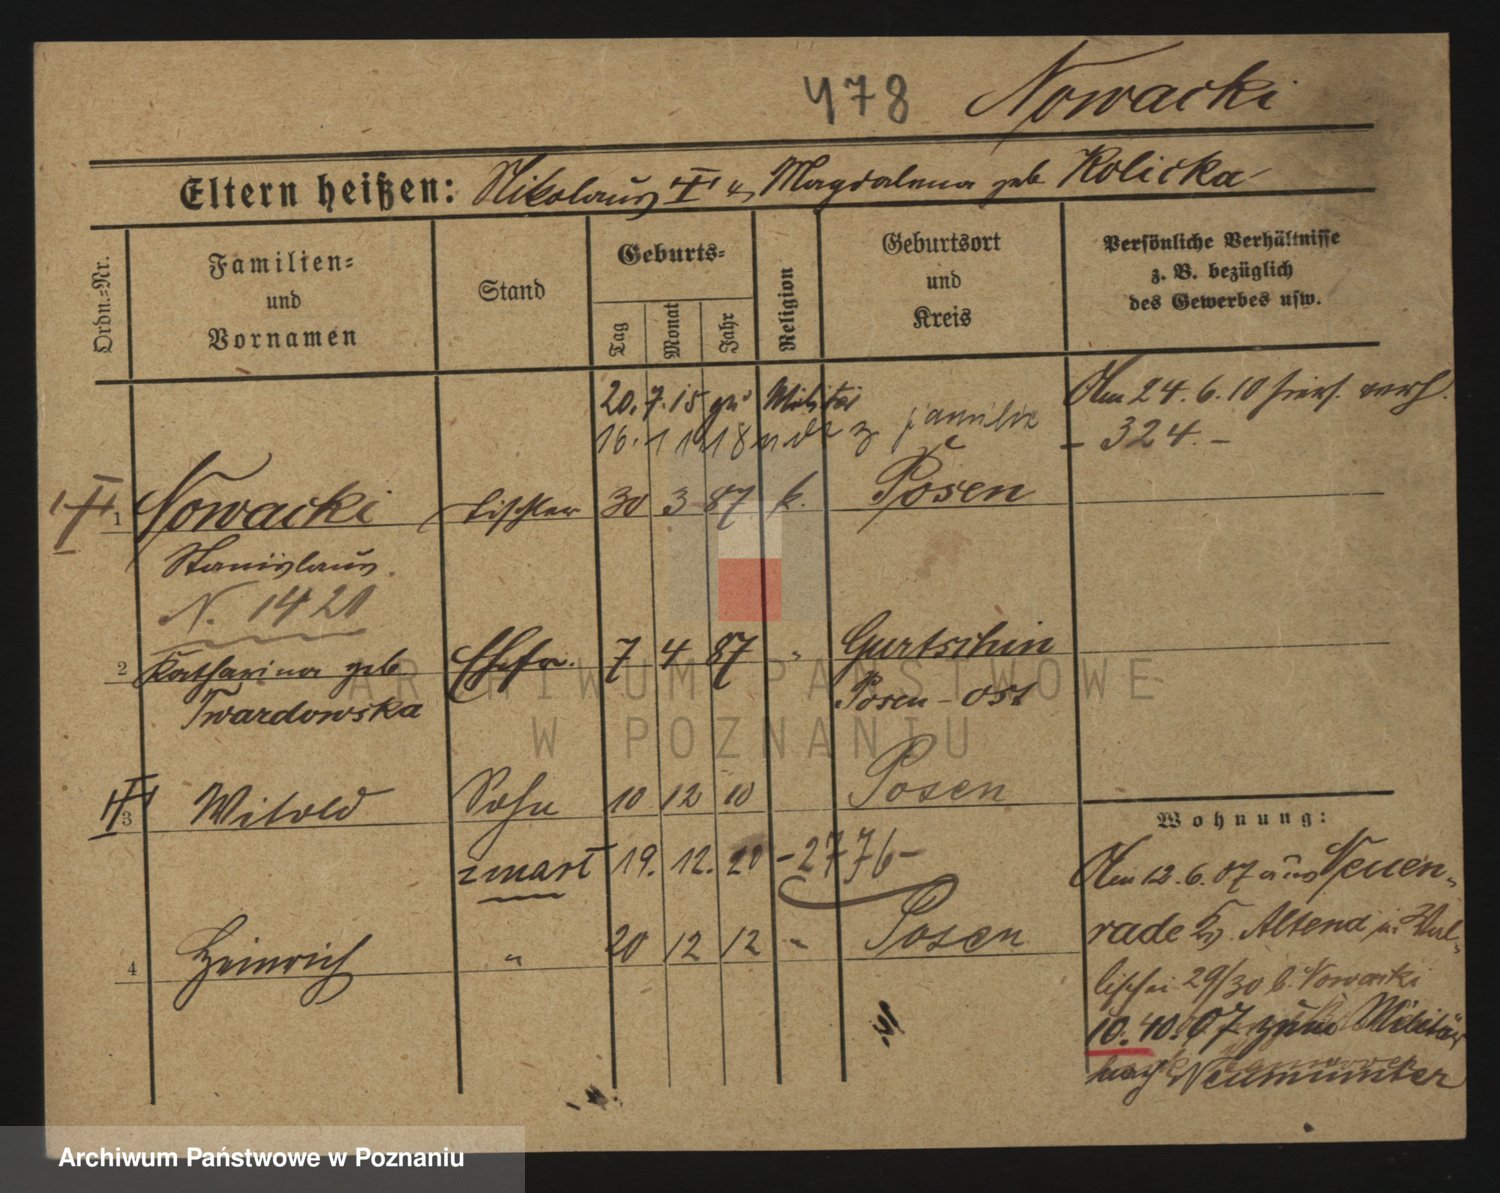 478 Nowacki
Eltern heißen: Nikolaus u Magdalena geb Kolicka
Ordn.=Nr.
Familien=
und
Vornamen
Stand
Geburts=
Tag
Monat
Jahr
Religion
Geburtsort
und
Kreis
Persönliche Verhältnisse
z. B. bezüglich
des Gewerbes usw.
20. 7. 15 zu Militär
16. 11. 18 z familie
Am 24. 6. 10 hiers. verh.
- 324. -
1 Nowacki Tischler 30 3 87 k. Posen
Stanislaus.
N. 1421
2 Katharina geb. Ehefr. 7 4 87 " Gurtschin
Twardowska Posen - Ost
3 Witold Sohn 10 12 10 Posen
zmarł 19. 12. 20 - 2776 -
4 Heinrich " 20 12 12 " Posen
Wohnung:
Am 12. 6. 07 aus Neuen-
rade Altena in Wal-
lischei 29/30 b. Nowacki
10. 10. 07 zum Militär
nach Neumünster
ARCHIWUM PAŃSTWOWE
W POZNANIU
Archiwum Państwowe w Poznaniu